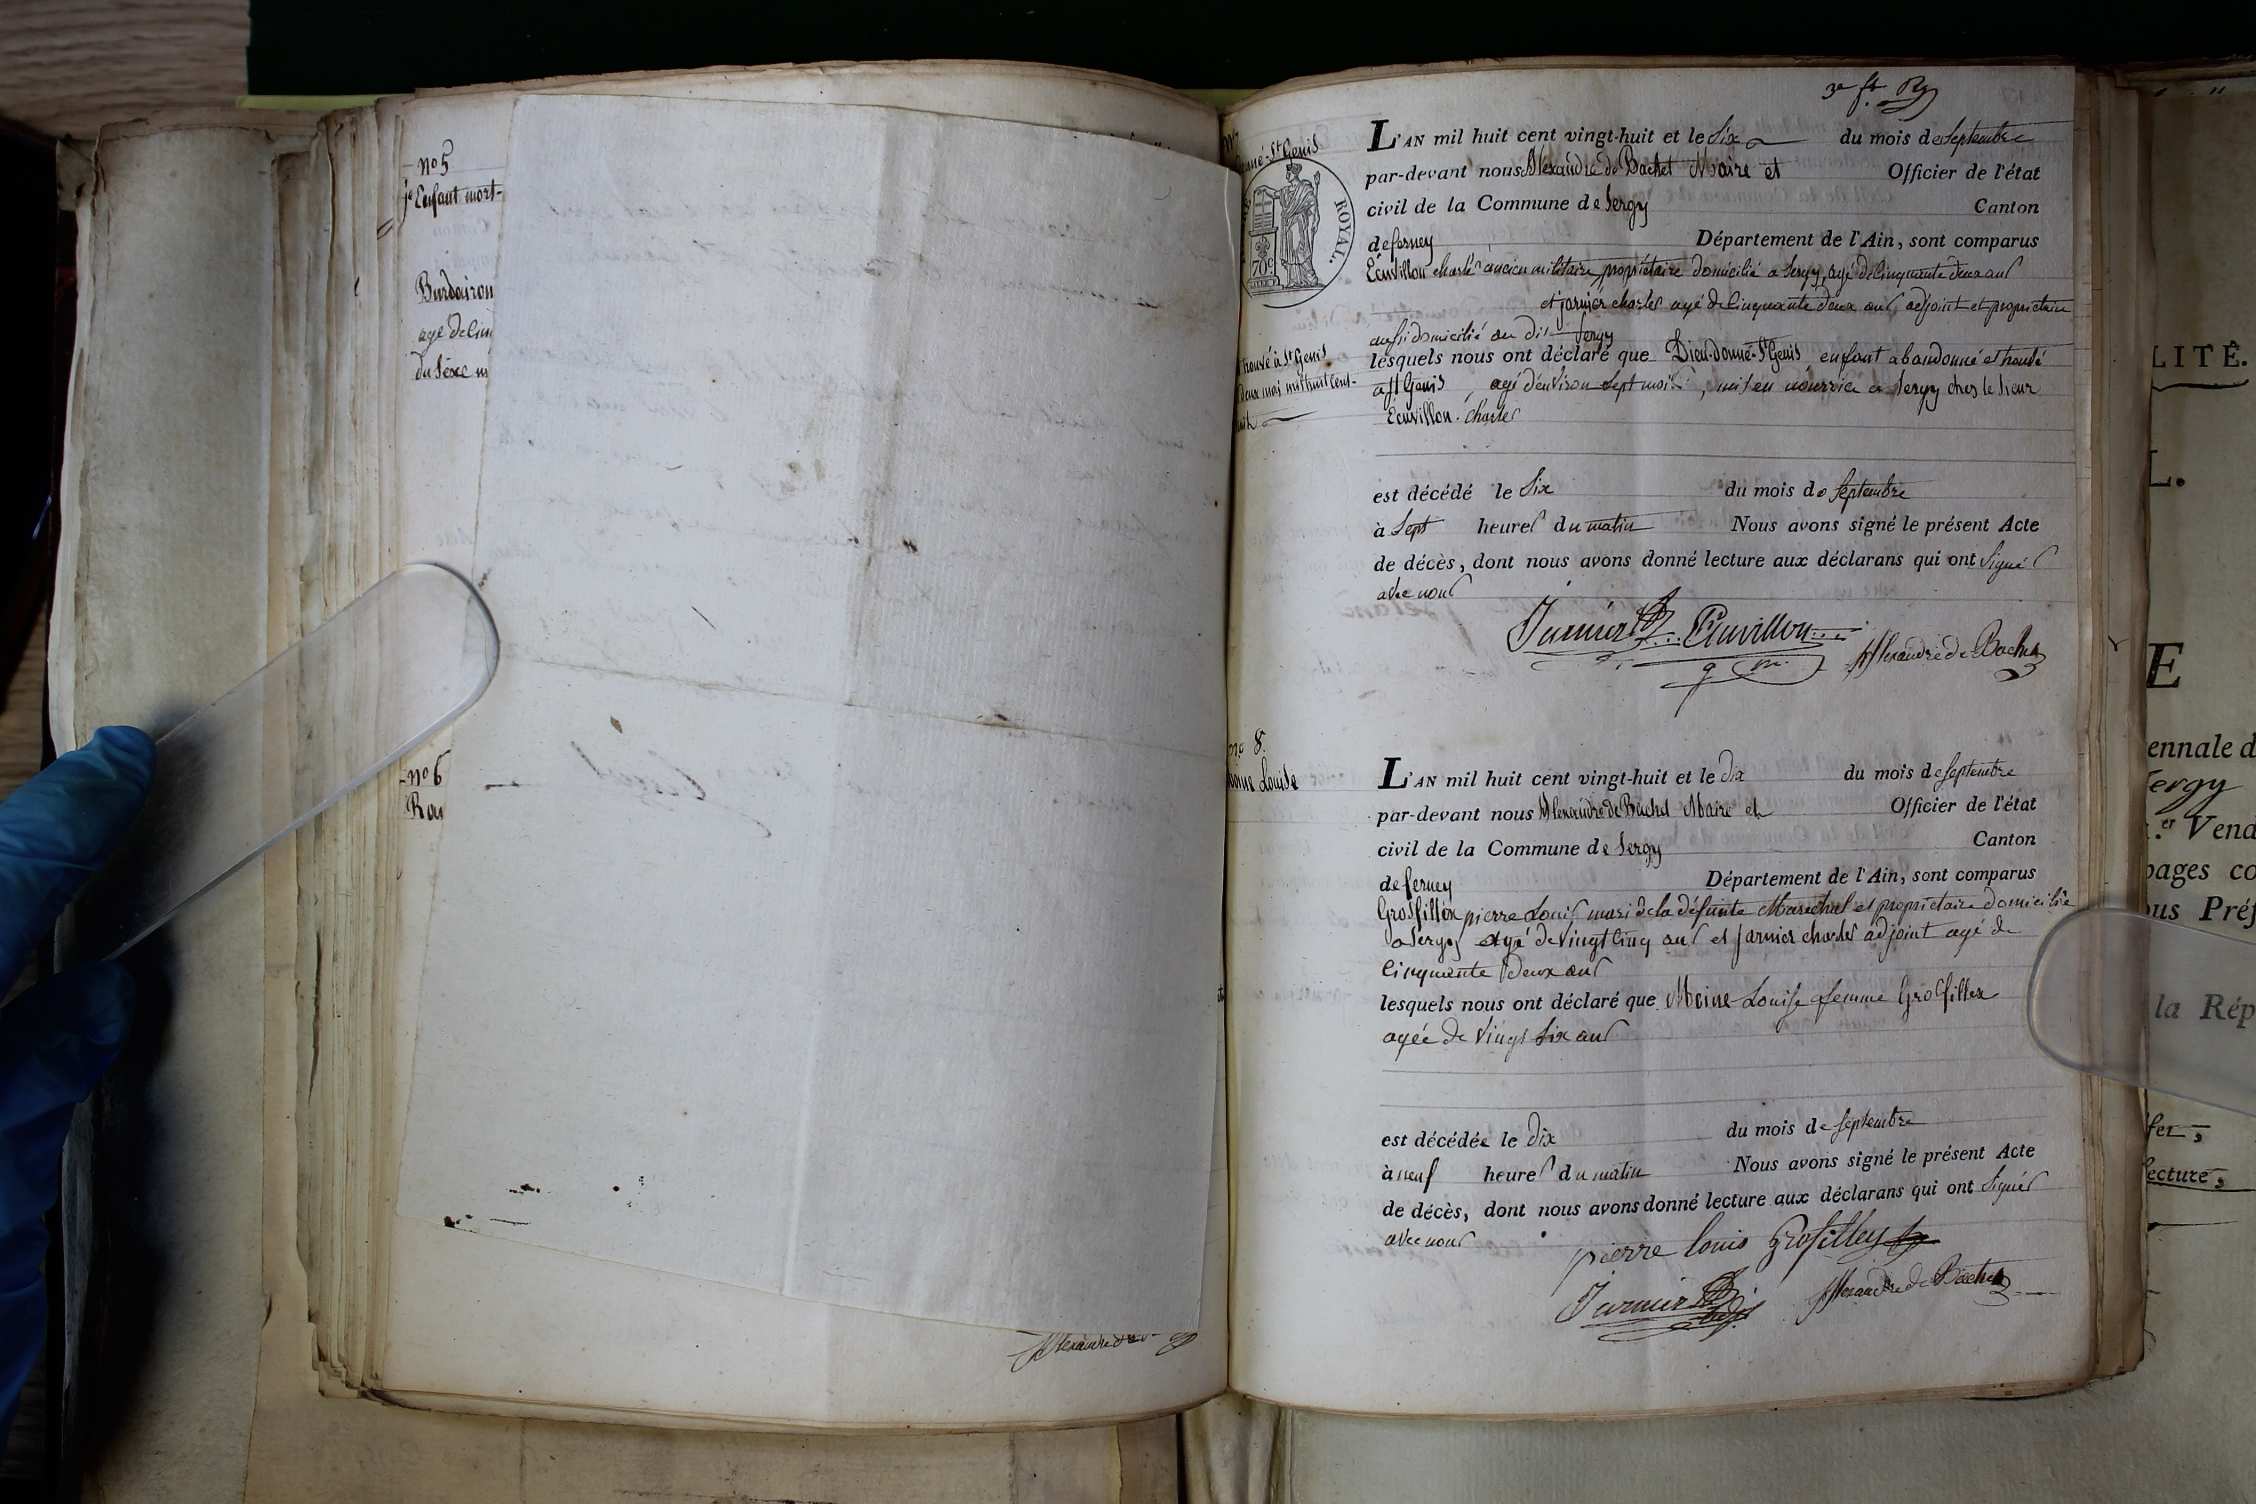 nº 5
Enfant mort-
agé de cin
du sexe m
nº 6
3e ft
St Genis
ROYAL.
70 c
trouvé à St Genis
deux mai mil huit cent-
L'AN mil huit cent vingt-huit et le six du mois de septembre
par-devant nous Alexandre de Bachet Maire et Officier de l'état
civil de la Commune de Sergy Canton
de ferney Département de l'Ain, sont comparus
Ecuvillon charles ancien militaire, propriétaire domicilié a Sergy, agé de Cinquante deux ans
et jarnier charles agé de Cinquante deux ans, adjoint et propriétaire
aussi domicilié au dit Sergy
lesquels nous ont déclaré que Dieu-donné-St Genis enfant abandonné et trouvé
a St Genis, agé d'environ sept mois, mis en nourrice a Sergy chez le sieur
Ecuvillon charles
est décédé le six du mois de septembre
à sept heures du matin Nous avons signé le présent Acte
de décès, dont nous avons donné lecture aux déclarans qui ont signés
avec nous
Jarnier Ecuvillon
Alexandre de Bachet
nº 8.
Louise
L'AN mil huit cent vingt-huit et le dix du mois de septembre
par-devant nous Alexandre de Bachet Maire et Officier de l'état
civil de la Commune de Sergy Canton
de ferney Département de l'Ain, sont comparus
Grosfillex pierre Louis mari de la défunte Marechal et propriétaire domicilié
a Sergy agé de vingt cinq ans et jarnier charles adjoint agé de
Cinquante deux ans
lesquels nous ont déclaré que Moine Louise femme Grosfillex
agée de vingt six ans
est décédée le dix du mois de septembre
à neuf heures du matin Nous avons signé le présent Acte
de décès, dont nous avons donné lecture aux déclarans qui ont signés
avec nous
pierre louis Grosfilley
Jarnier Alexandre de Bachet
Alexandre de
LITÉ.
L.
E
ennale d
ergy
er Vend
pages co
ous Préf
la Rép
fer,
ecture,